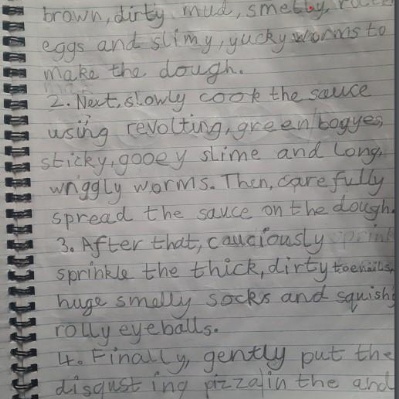 brown, dirty mud, smelly,
eggs and slimy, yucky worms to
make the dough.
2. Next, slowly cook the sauce
using revolting, green bogyes,
sticky, gooey slime and long,
wriggly worms. Then, carefully
spread the sauce on the dough.
3. After that, cauciously
sprinkle the thick, dirty toenails,
huge smelly socks and squishy
rolly eyeballs.
4. Finally, gently put the
disgusting pizza in the and